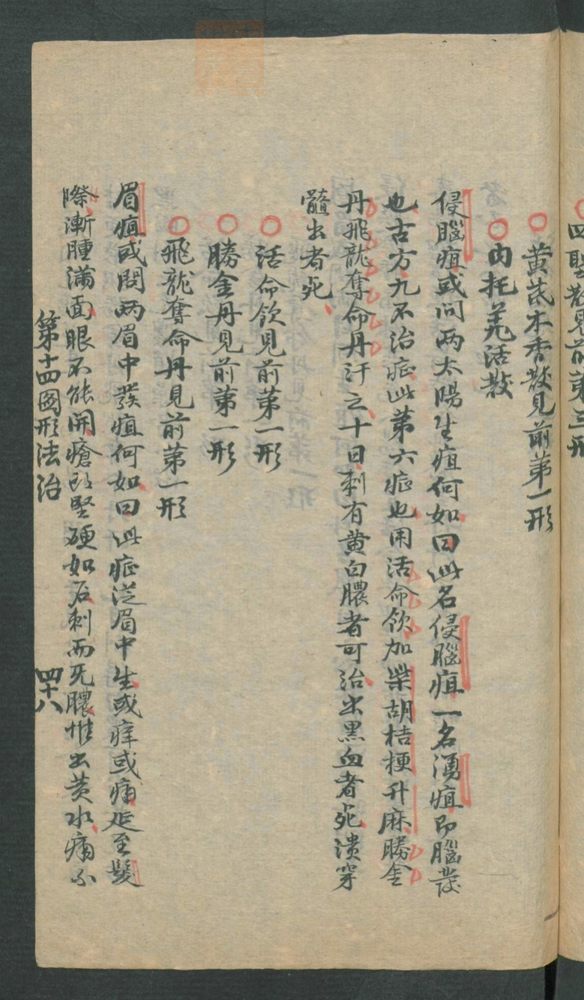 黄芪木香散見前第一形
内托羌活散
侵腦疽或问两太陽生疽何如曰此名侵腦疽一名湧疽即腦發
也古方九不治症此第六症也用活命飲加柴胡桔梗升麻勝金
丹飛龍奪命丹汗之十日刺有黄白膿者可治出黑血者死潰穿
髓出者死
活命飲見前第一形
勝金丹見前第一形
飛龍奪命丹見前第一形
眉疽或問两眉中發疽何如曰此症從眉中生或痒或痛延至髮
際漸腫满面眼不能開瘡口堅硬如石刺而无膿惟出黄水痛不
第十四圖形法治
四十八